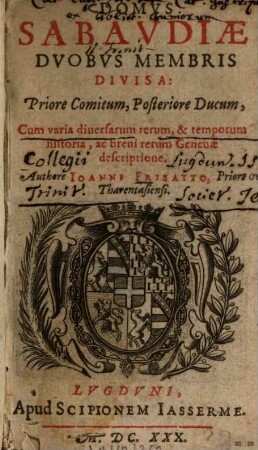 DOMVS
SABAVDIÆ
DVOBVS MEMBRIS
DIVISA:
Priore Comitum, Posteriore Ducum,
Cum varia diuersarum rerum, & temporum
historia, ac breui rerum Geneuæ
descriptione.
Collegii Lugdun. SS
Authore IOANNE FRISATTO, Priore
Trinit. Tharentasiensi. Societ. Je
LVGDVNI,
Apud SCIPIONEM IASSERME.
M. DC. XXX.